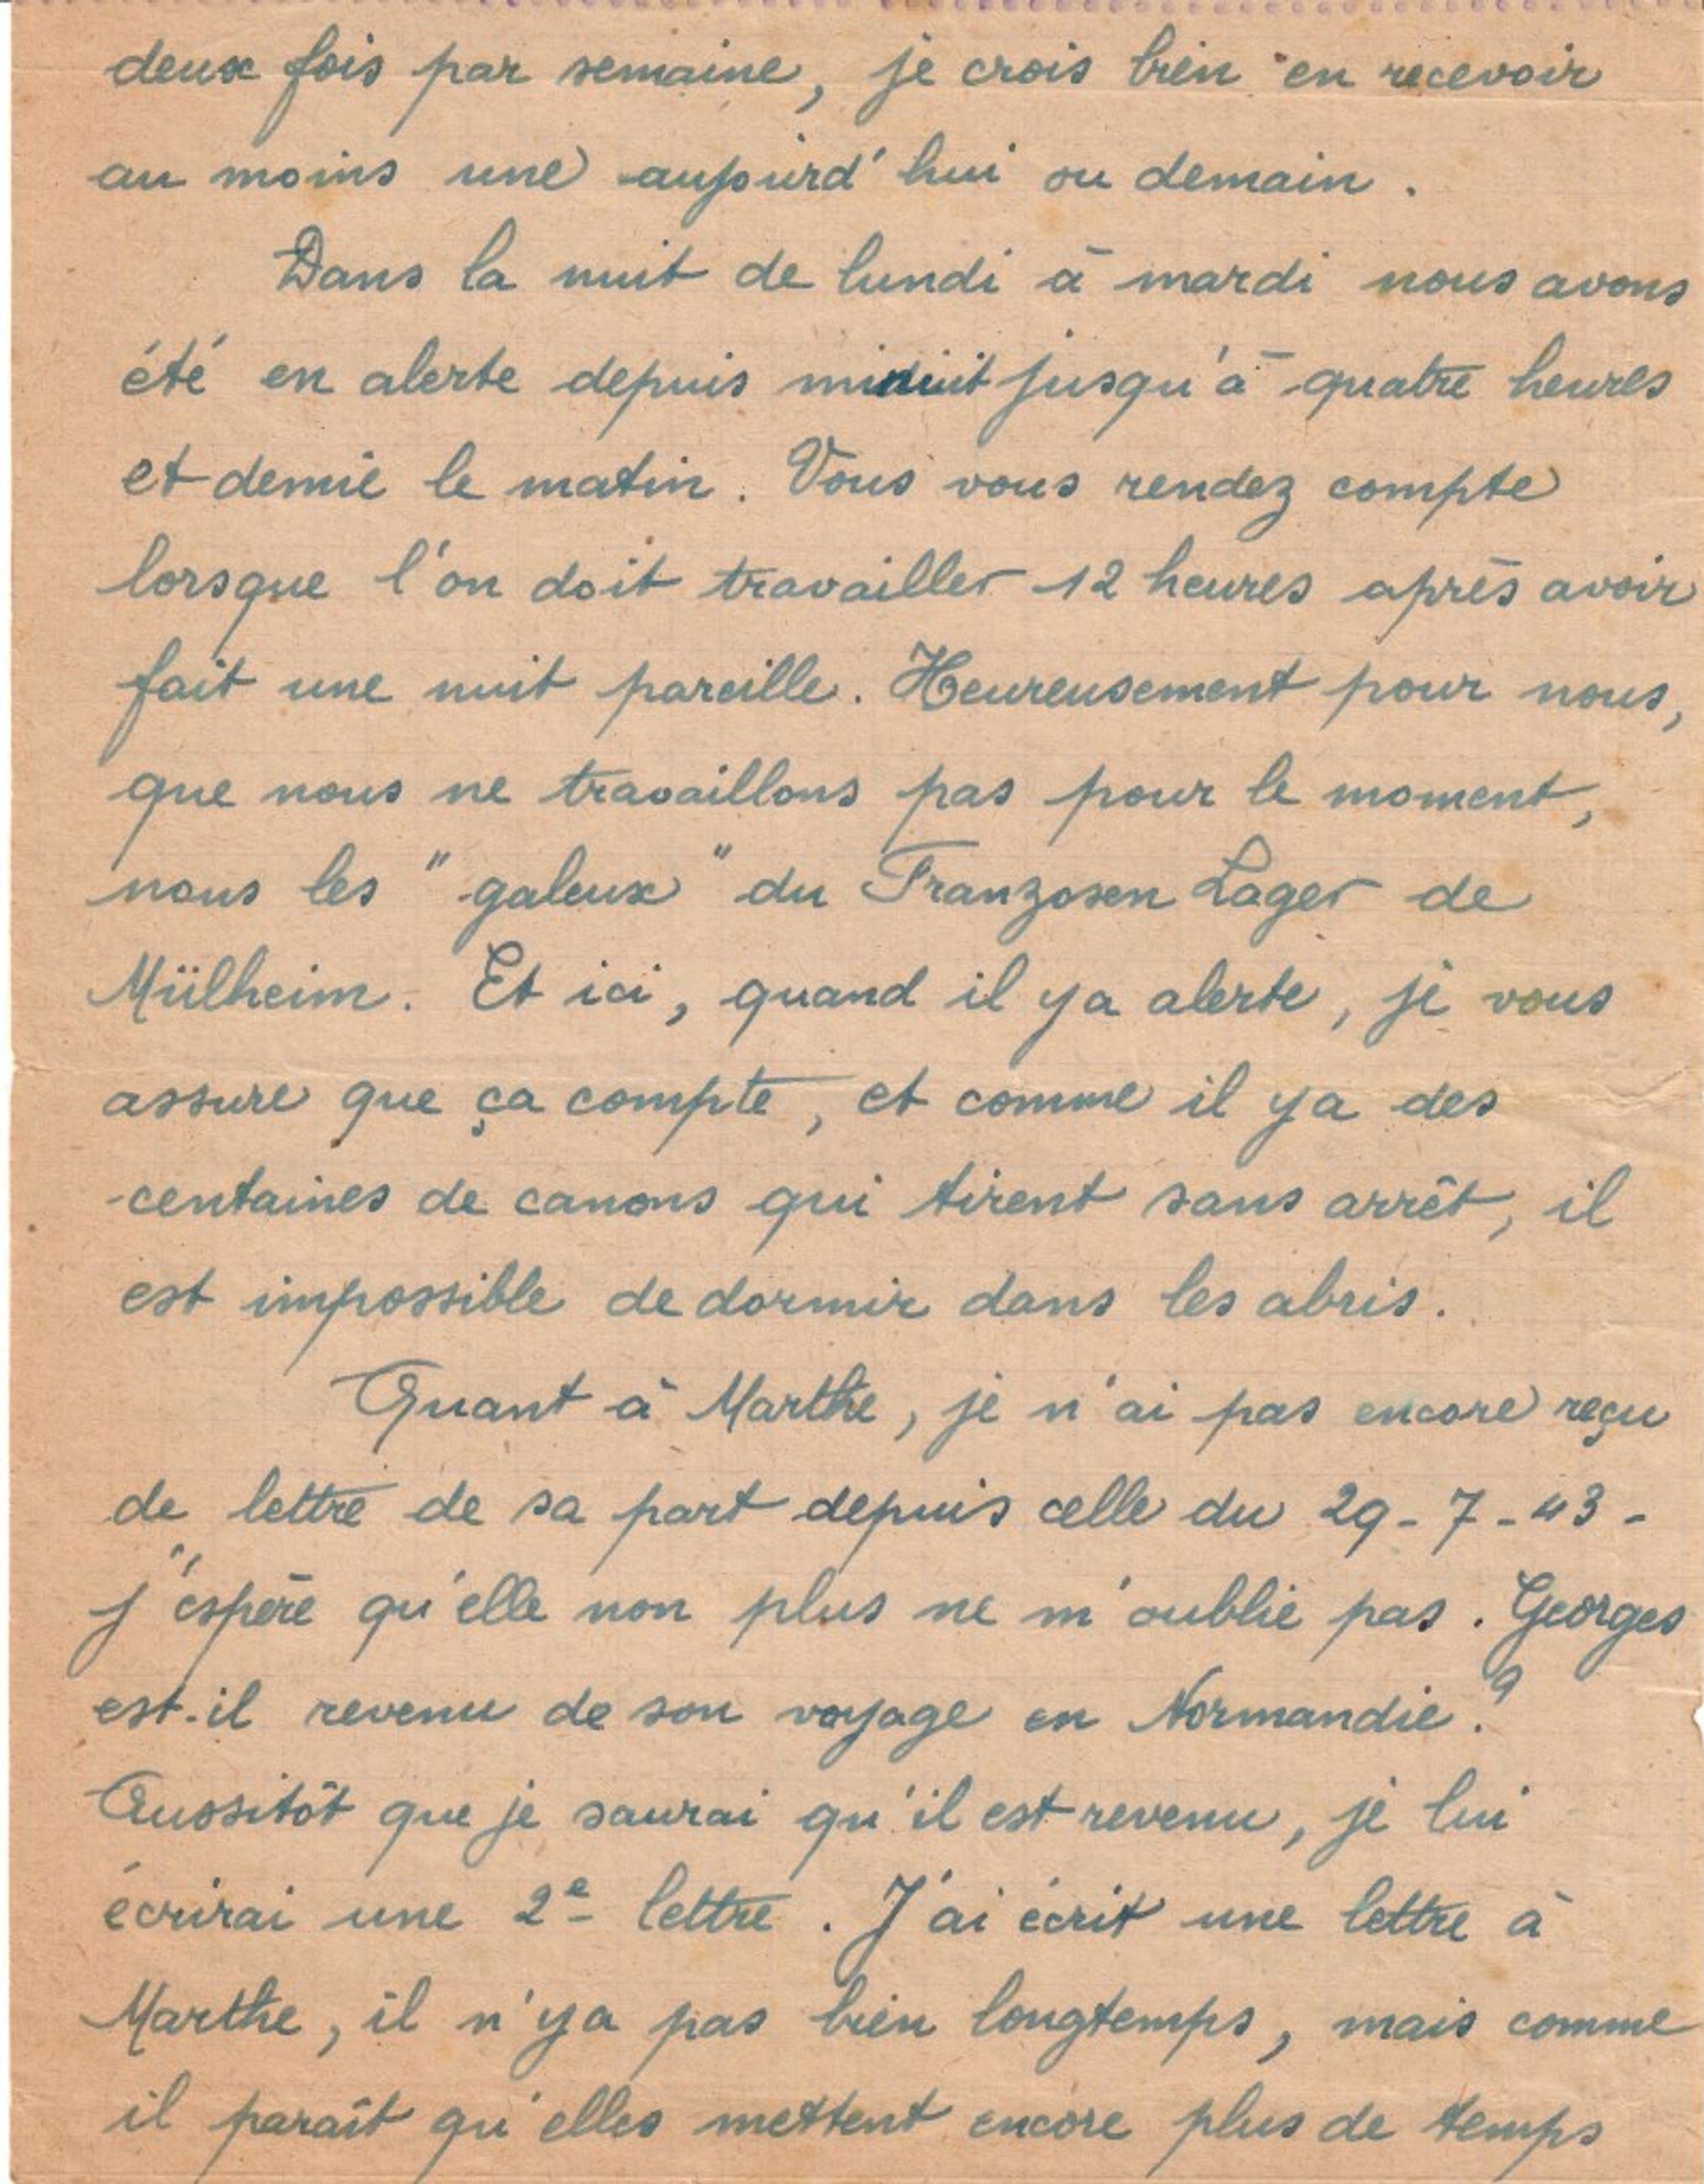 deux fois par semaine, je crois bien en recevoir
au moins une aujourd'hui ou demain.
Dans la nuit de lundi à mardi nous avons
été en alerte depuis minuit jusqu'à quatre heures
et demie le matin. Vous vous rendez compte
lorsque l'on doit travailler 12 heures après avoir
fait une nuit pareille. Heureusement pour nous,
que nous ne travaillons pas pour le moment,
nous les "galeux" du Franzosen Lager de
Mülheim. Et ici, quand il y a alerte, je vous
assure que ça compte, et comme il y a des
centaines de canons qui tirent sans arrêt, il
est impossible de dormir dans les abris.
Quant à Marthe, je n'ai pas encore reçu
de lettre de sa part depuis celle du 29-7-43-
j'espère qu'elle non plus ne m'oublie pas. Georges
est-il revenu de son voyage en Normandie?
Aussitôt que je saurai qu'il est revenu, je lui
écrirai une 2e lettre. J'ai écrit une lettre à
Marthe, il n'y a pas bien longtemps, mais comme
il paraît qu'elles mettent encore plus de temps